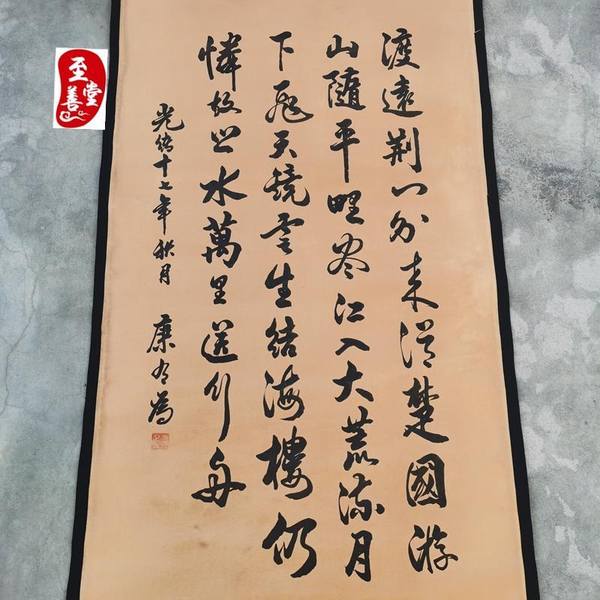 渡遠荆门外来從楚國游
山隨平野尽江入大荒流月
下飛天镜雲生结海樓仍
憐故鄉水萬里送行舟
光绪十七年秋月
康有為
至善堂